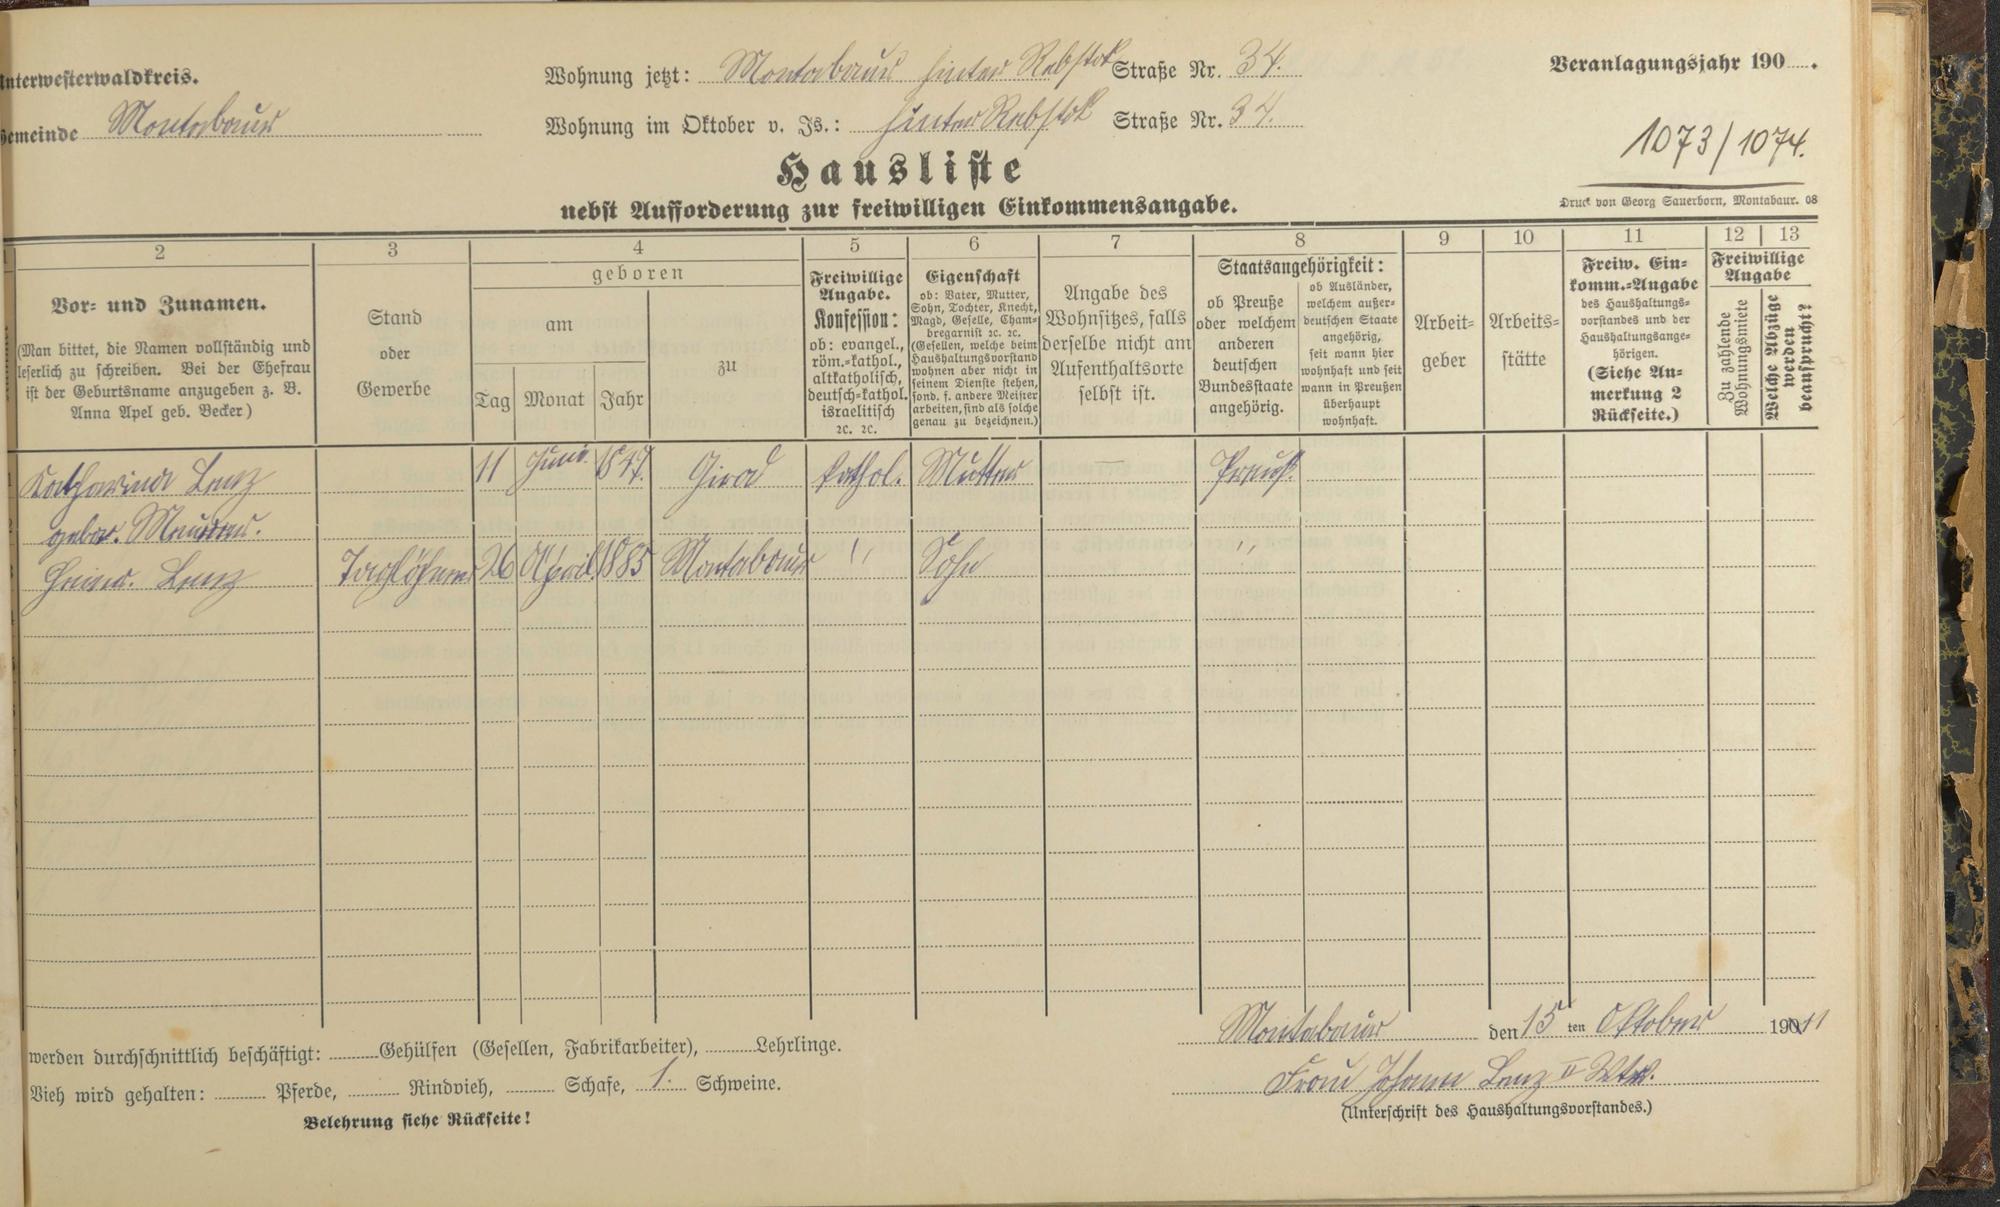 Unterwesterwaldkreis.
Gemeinde Montabaur
Wohnung jetzt: Montabaur hinter Rebstok Straße Nr. 34.
Wohnung im Oktober v. Js.: hinter Rebstok Straße Nr. 34.
Veranlagungsjahr 190 .
1073/1074.
Hausliste
nebst Aufforderung zur freiwilligen Einkommensangabe.
Druck von Georg Sauerborn, Montabaur. 08
2 3 4 5 6 7 8 9 10 11 12 13
Vor- und Zunamen.
(Man bittet, die Namen vollständig und
leserlich zu schreiben. Bei der Ehefrau
ist der Geburtsname anzugeben z. B.
Anna Apel geb. Becker)
Stand
oder
Gewerbe
geboren
am
Tag Monat Jahr
zu
Freiwillige
Angabe.
Konfession:
ob: evangel.,
röm.-kathol.,
altkatholisch,
deutsch-kathol.
israelitisch
ꝛc. ꝛc.
Eigenschaft
ob: Vater, Mutter,
Sohn, Tochter, Knecht,
Magd, Geselle, Cham-
bregarnist ꝛc. ꝛc.
(Gesellen, welche beim
Haushaltungsvorstand
wohnen aber nicht in
seinem Dienste stehen,
sond. f. andere Meister
arbeiten, sind als solche
genau zu bezeichnen.)
Angabe des
Wohnsitzes, falls
derselbe nicht am
Aufenthaltsorte
selbst ist.
Staatsangehörigkeit:
ob Preuße
oder welchem
anderen
deutschen
Bundesstaate
angehörig.
ob Ausländer,
welchem außer-
deutschen Staate
angehörig,
seit wann hier
wohnhaft und seit
wann in Preußen
überhaupt
wohnhaft.
Arbeit-
geber
Arbeits-
stätte
Freiw. Ein-
komm.-Angabe
des Haushaltungs-
vorstandes und der
Haushaltungsange-
hörigen.
(Siehe An-
merkung 2
Rückseite.)
Freiwillige
Angabe
Zu zahlende
Wohnungsmiete
Welche Abzüge
werden
beansprucht?
Katharina Lenz 11 Juni 1847. Girod kathol. Mutter — Preuß.
gebor.
Heinr. Lenz Taglöhner 26 April 1885 Montabaur " Sohn "
Montabaur den 15 ten Oktober 1911
werden durchschnittlich beschäftigt: Gehülfen (Gesellen, Fabrikarbeiter), Lehrlinge.
Vieh wird gehalten: Pferde, Rindvieh, Schafe, 1. Schweine.
Frau Johann Lenz II Wtw.
(Unterschrift des Haushaltungsvorstandes.)
Belehrung siehe Rückseite!